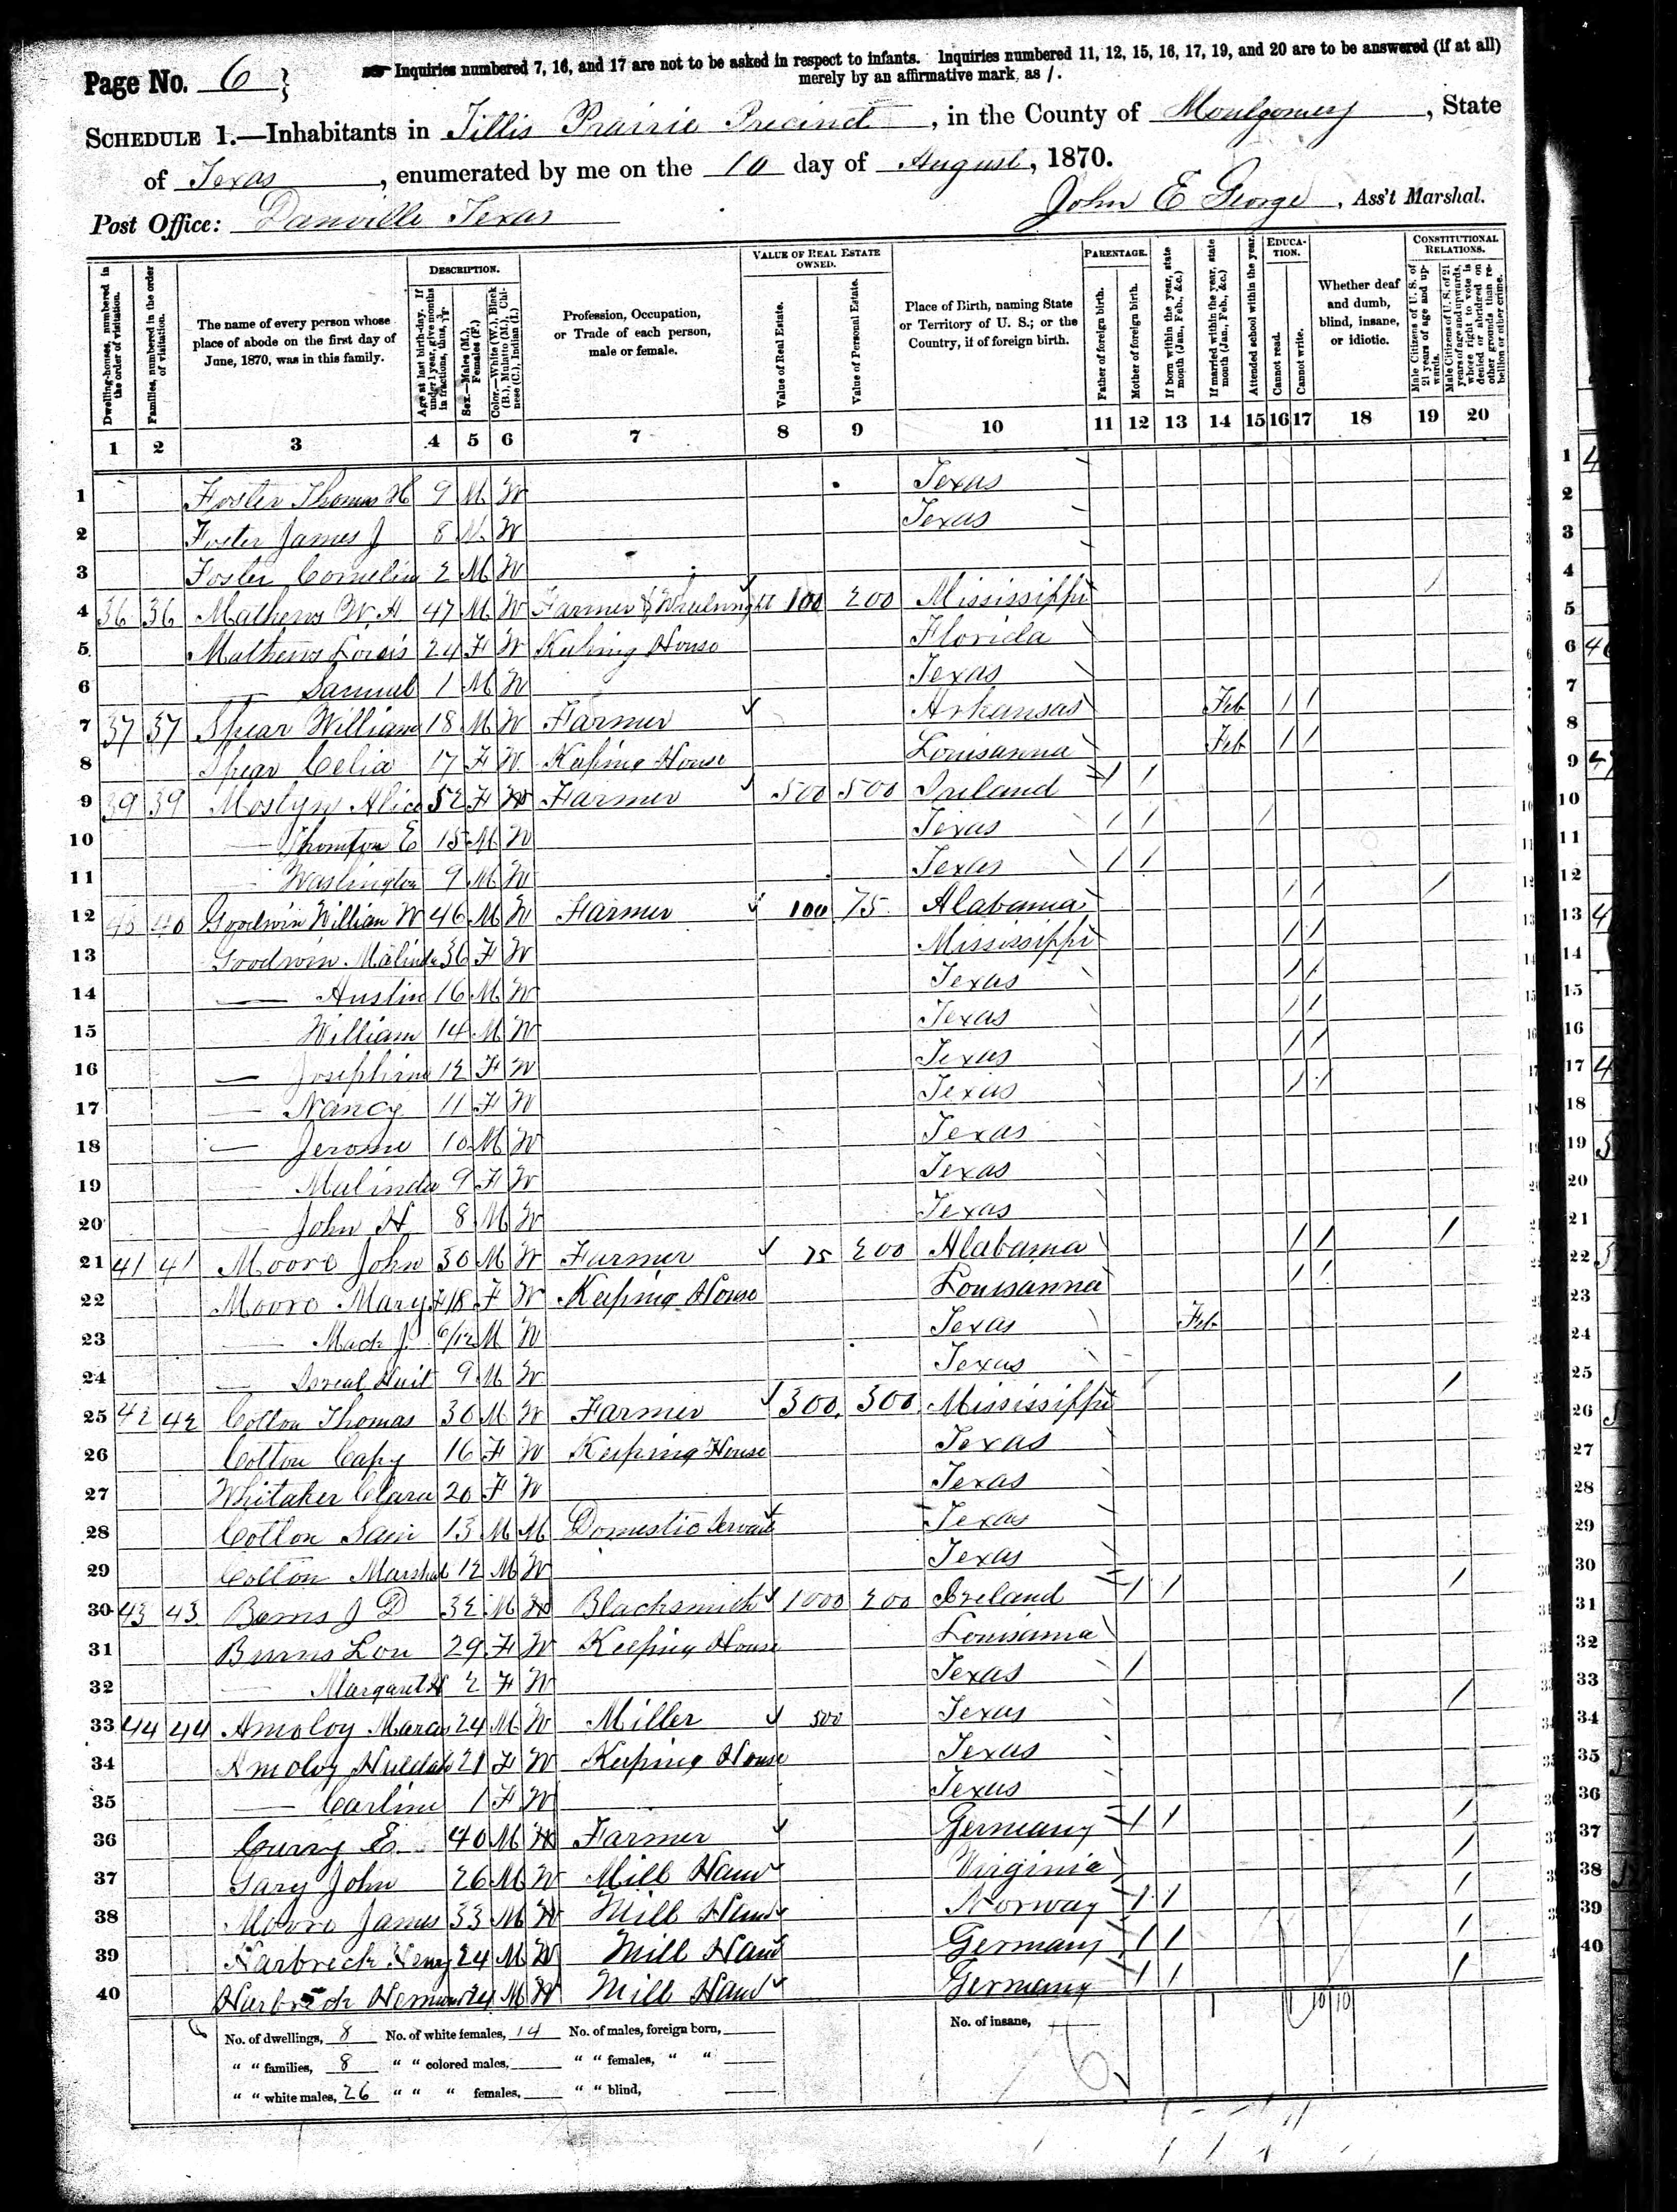 Page No. 6 } Inquiries numbered 7, 16, and 17 are not to be asked in respect to infants. Inquiries numbered 11, 12, 15, 16, 17, 19, and 20 are to be answered (if at all)
merely by an affirmative mark, as /.
SCHEDULE 1.—Inhabitants in Tillis Prairie Precinct, in the County of Montgomery, State
of Texas, enumerated by me on the 10 day of August, 1870.
Post Office: Danville Texas John E George, Ass't Marshal.
Dwelling-houses, numbered in the order of visitation.
Families, numbered in the order of visitation.
The name of every person whose place of abode on the first day of June, 1870, was in this family.
DESCRIPTION.
Age at last birth-day. If under 1 year, give months in fractions, thus,
Sex.—Males (M.), Females (F.)
Color.—White (W.), Black (B.), Mulatto (M.), Chinese (C.), Indian (I.)
Profession, Occupation, or Trade of each person, male or female.
VALUE OF REAL ESTATE OWNED.
Value of Real Estate.
Value of Personal Estate.
Place of Birth, naming State or Territory of U. S.; or the Country, if of foreign birth.
PARENTAGE.
Father of foreign birth.
Mother of foreign birth.
If born within the year, state month (Jan., Feb., &c.)
If married within the year, state month (Jan., Feb., &c.)
Attended school within the year.
EDUCATION.
Cannot read.
Cannot write.
Whether deaf and dumb, blind, insane, or idiotic.
CONSTITUTIONAL RELATIONS.
Male Citizens of U. S. of 21 years of age and upwards.
Male Citizens of U. S. of 21 years of age and upwards, whose right to vote is denied or abridged on other grounds than rebellion or other crime.
1 2 3 4 5 6 7 8 9 10 11 12 13 14 15 16 17 18 19 20
1 Foster Thomas H 9 M W Texas
2 Foster James J 8 M W Texas
3 Foster Cornelius 2 M W
4 36 36 Mathews W. H 47 M W Farmer & Wheelwright 100 200 Mississippi /
5 Mathews 24 F W Keeping House Florida
6 — Samuel 1 M W Texas
7 37 37 Spear William 18 M W Farmer Arkansas Feb / /
8 Spear Celia 17 F W Keeping House Louisanna Feb / /
9 39 39 Moslyn Alice 52 F W Farmer 500 500 Ireland / /
10 — E 15 M W Texas / / /
11 — Washington 9 M W Texas / /
12 40 40 Goodwin William W 46 M W Farmer 100 75 Alabama / / /
13 Goodwin Malinda 36 F W Mississippi / /
14 — Austin 16 M W Texas / /
15 William 14 M W Texas / /
16 — Josephine 12 F W Texas / /
17 — Nancy 11 F W Texas / /
18 — Jerome 10 M W Texas
19 — Malinda 9 F W Texas
20 — John H 8 M W Texas
21 41 41 Moore John 30 M W Farmer 75 200 Alabama / / /
22 Moore Mary F 18 F W Keeping House Louisanna / /
23 — Mack J. 6/12 M W Texas Feb
24 — 9 M W Texas
25 42 42 Cotton Thomas 30 M W Farmer 300 300 Mississippi /
26 Cotton Capy 16 F W Keeping House Texas
27 Whitaker Clara 20 F W Texas
28 Cotton Sam 13 M M Domestic Servant Texas
29 Cotton Marshal 12 M W Texas
30 43 43 Burns J D 32 M W Blacksmith 1000 200 Ireland / / /
31 Burns Lou 29 F W Keeping House Louisanna
32 — Margaret 2 F W Texas /
33 44 44 Amoloy 24 M W Miller 500 Texas /
34 Amoloy Huldah 21 F W Keeping House Texas
35 — Carline 1 F W Texas
36 Curry E. 40 M W Farmer Germany / / /
37 Gary John 26 M W Mill Hand Virginia /
38 Moore James 33 M W Mill Hand Norway / / /
39 Harbreck Henry 24 M W Mill Hand Germany / / /
40 Harbreck Herman 24 M W Mill Hand Germany / / /
No. of dwellings, 8 No. of white females, 14 No. of males, foreign born, No. of insane,
" " families, 8 " " colored males, " " females, " "
" " white males, 26 " " " females, " " blind,